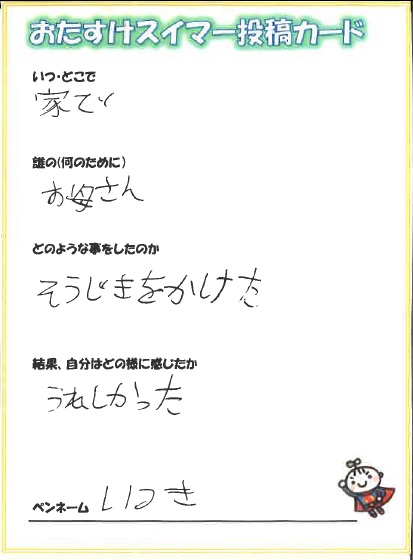 おたすけスイマー投稿カード
いつ・どこで
家で
誰の(何のために)
お母さん
どのような事をしたのか
そうじきをかけた
結果、自分はどの様に感じたか
うれしかった
ペンネーム いつき